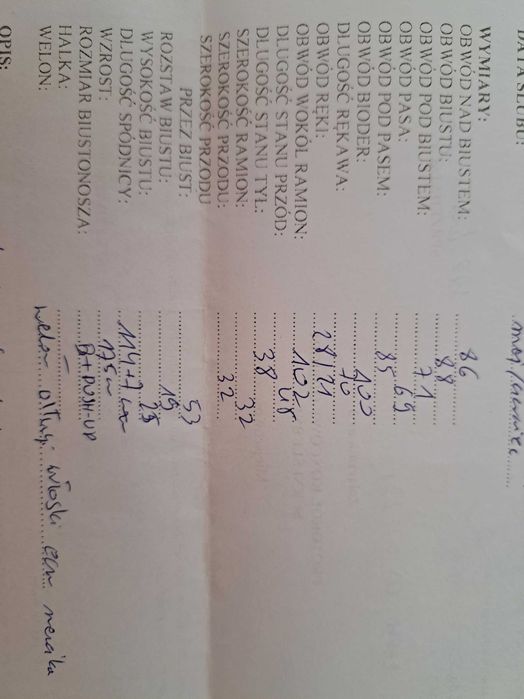 DATA ŚLUBU:
WYMIARY:
OBWÓD NAD BIUSTEM: 86
OBWÓD BIUSTU: 88
OBWÓD POD BIUSTEM: 71
OBWÓD PASA: 69
OBWÓD POD PASEM: 85
OBWÓD BIODER: 100
DŁUGOŚĆ RĘKAWA: 70
OBWÓD RĘKI: 28/21
OBWÓD WOKÓŁ RAMION: 102
DŁUGOŚĆ STANU PRZÓD:
DŁUGOŚĆ STANU TYŁ: 38
SZEROKOŚĆ RAMION: 32
SZEROKOŚĆ PRZODU: 32
SZEROKOŚĆ PRZODU
PRZEZ BIUST: 53
ROZSTAW BIUSTU: 19
WYSOKOŚĆ BIUSTU: 28
DŁUGOŚĆ SPÓDNICY: 114+7 cm
WZROST: 175
ROZMIAR BIUSTONOSZA: B+PUSH-UP
HALKA: –
WELON: welon długi włoski
OPIS: